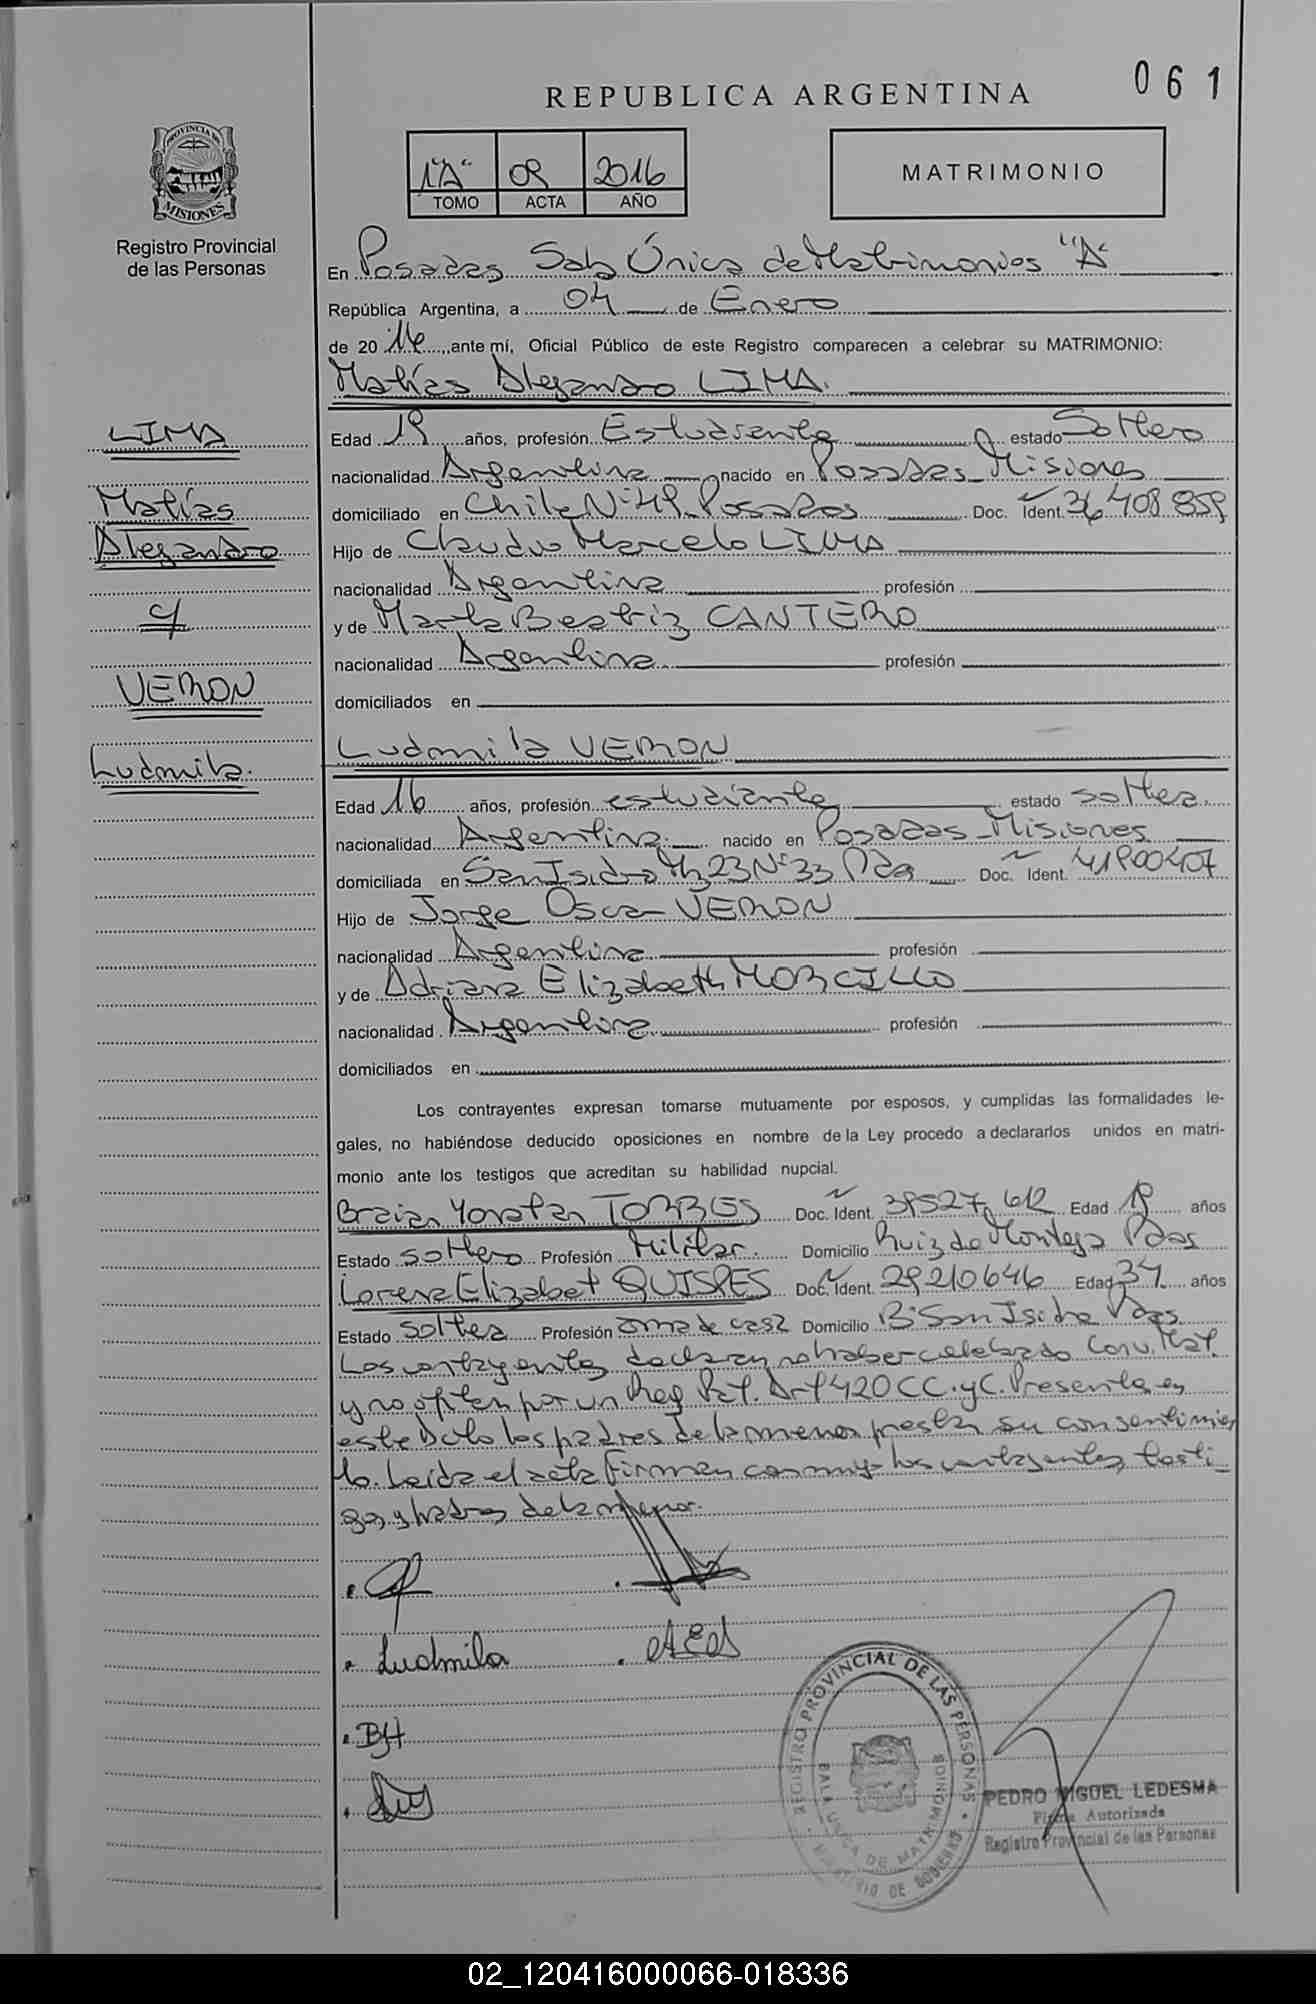 061
REPUBLICA ARGENTINA
PROVINCIA DE
MISIONES
Registro Provincial
de las Personas
1"A" 09 2016
TOMO ACTA AÑO
MATRIMONIO
En Posadas Sala Única de Matrimonios "A"
República Argentina, a 04 de Enero
de 2016, ante mí, Oficial Público de este Registro comparecen a celebrar su MATRIMONIO:
Matías Alejandro LIMA.
LIMA
Matías
Alejandro
c/
VERON
Ludmila.
Edad 19 años, profesión Estudiante estado Soltero
nacionalidad Argentina nacido en Posadas Misiones
domiciliado en Chile N° 49 Posadas Doc. Ident. 36 408 859
Hijo de Claudio Marcelo LIMA
nacionalidad Argentina profesión
y de Marta Beatriz CANTERO
nacionalidad Argentina profesión
domiciliados en
Ludmila VERON
Edad 16 años, profesión estudiante estado soltera.
nacionalidad Argentina. nacido en Posadas Misiones
domiciliada en San Isidro Mz 23 N° 33 Pdas Doc. Ident. 41900407
Hijo de Jorge Oscar VERON
nacionalidad Argentina profesión
y de Adriana Elizabeth MORCILLO
nacionalidad Argentina profesión
domiciliados en
Los contrayentes expresan tomarse mutuamente por esposos, y cumplidas las formalidades le-
gales, no habiéndose deducido oposiciones en nombre de la Ley procedo a declararlos unidos en matri-
monio ante los testigos que acreditan su habilidad nupcial.
Braian Yonatan TORRES Doc. Ident. 39527.612 Edad 19 años
Estado soltero Profesión Militar. Domicilio Ruiz de Montoya Pdas
Lorena Elizabet QUISPES Doc. Ident. 29210646 Edad 34 años
Estado soltera Profesión ama de casa Domicilio B° San Isidro Pdas.
Los contrayentes declaran no haber celebrado Conv. Mat.
y no optan por un Reg Pat. Art 420 CC. y C. Presentes en
este Acto los padres de la menor prestan su consentimien
to. Leida el acta firman conmigo los contrayentes, testi-
gos y padres de la menor.
Ludmila
BH
REGISTRO PROVINCIAL DE LAS PERSONAS
SALA UNICA DE MATRIMONIOS
MINISTERIO DE GOBIERNO
PEDRO MIGUEL LEDESMA
Firma Autorizada
Registro Provincial de las Personas
02_120416000066-018336